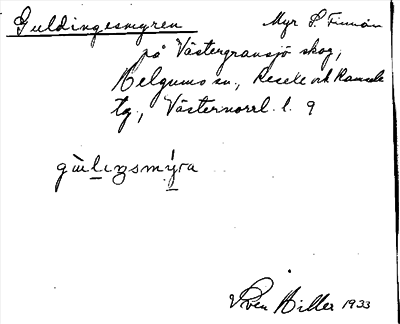 Guldingesmyren Myr S. Finnån
på Västergransjö skog,
Helgums sn., Resele och Ramsele
tg., Västernorrl. l. 9
gu̇liŋsmýra
Sven Hiller 1933